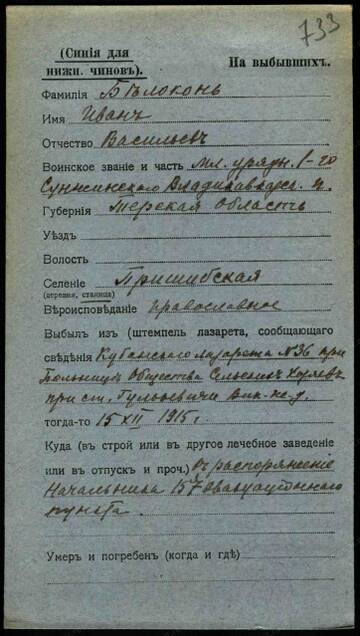 733
(Синія для
нижн. чиновъ).
На выбывшихъ.
Фамилія Бѣлоконь
Имя Иванъ
Отчество Васильевъ
Воинское званіе и часть Мл. урядн. 1-го
Сунженского Владикавказск. п.
Губернія Терская Область
Уѣздъ
Волость
Селеніе Пришибская
(деревня, станица)
Вѣроисповѣданіе православное
Выбылъ изъ (штемпель лазарета, сообщающаго
свѣдѣнія Кубанского лазарета №36 при
Больницѣ Общества Сельских
при ст. Гулькевичи Влк. ж. д.
тогда-то 15 XII 1915 г.
Куда (въ строй или въ другое лечебное заведеніе
или въ отпускъ и проч.) въ распоряженіе
Начальника 157 Эвакуаціонного
пункта.
Умеръ и погребенъ (когда и гдѣ)